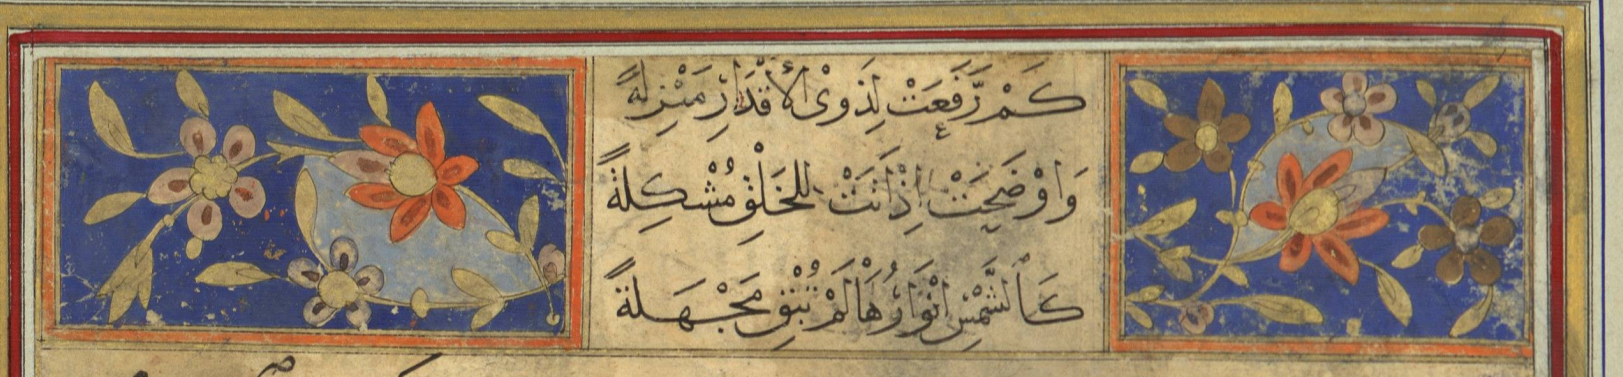 كَمْ رَّفَعَتْ لِذَوِى الْأَقْدَارِ مَنْزِلَةً
وَاوْضَحَتْ اِذْ اَتَتْ لِلخَلْقِ مُشْكِلَةً
كَالشَّمْسِ اَنْوَارُهَا لَمْ تُبْقِ مَجْهَلَةً